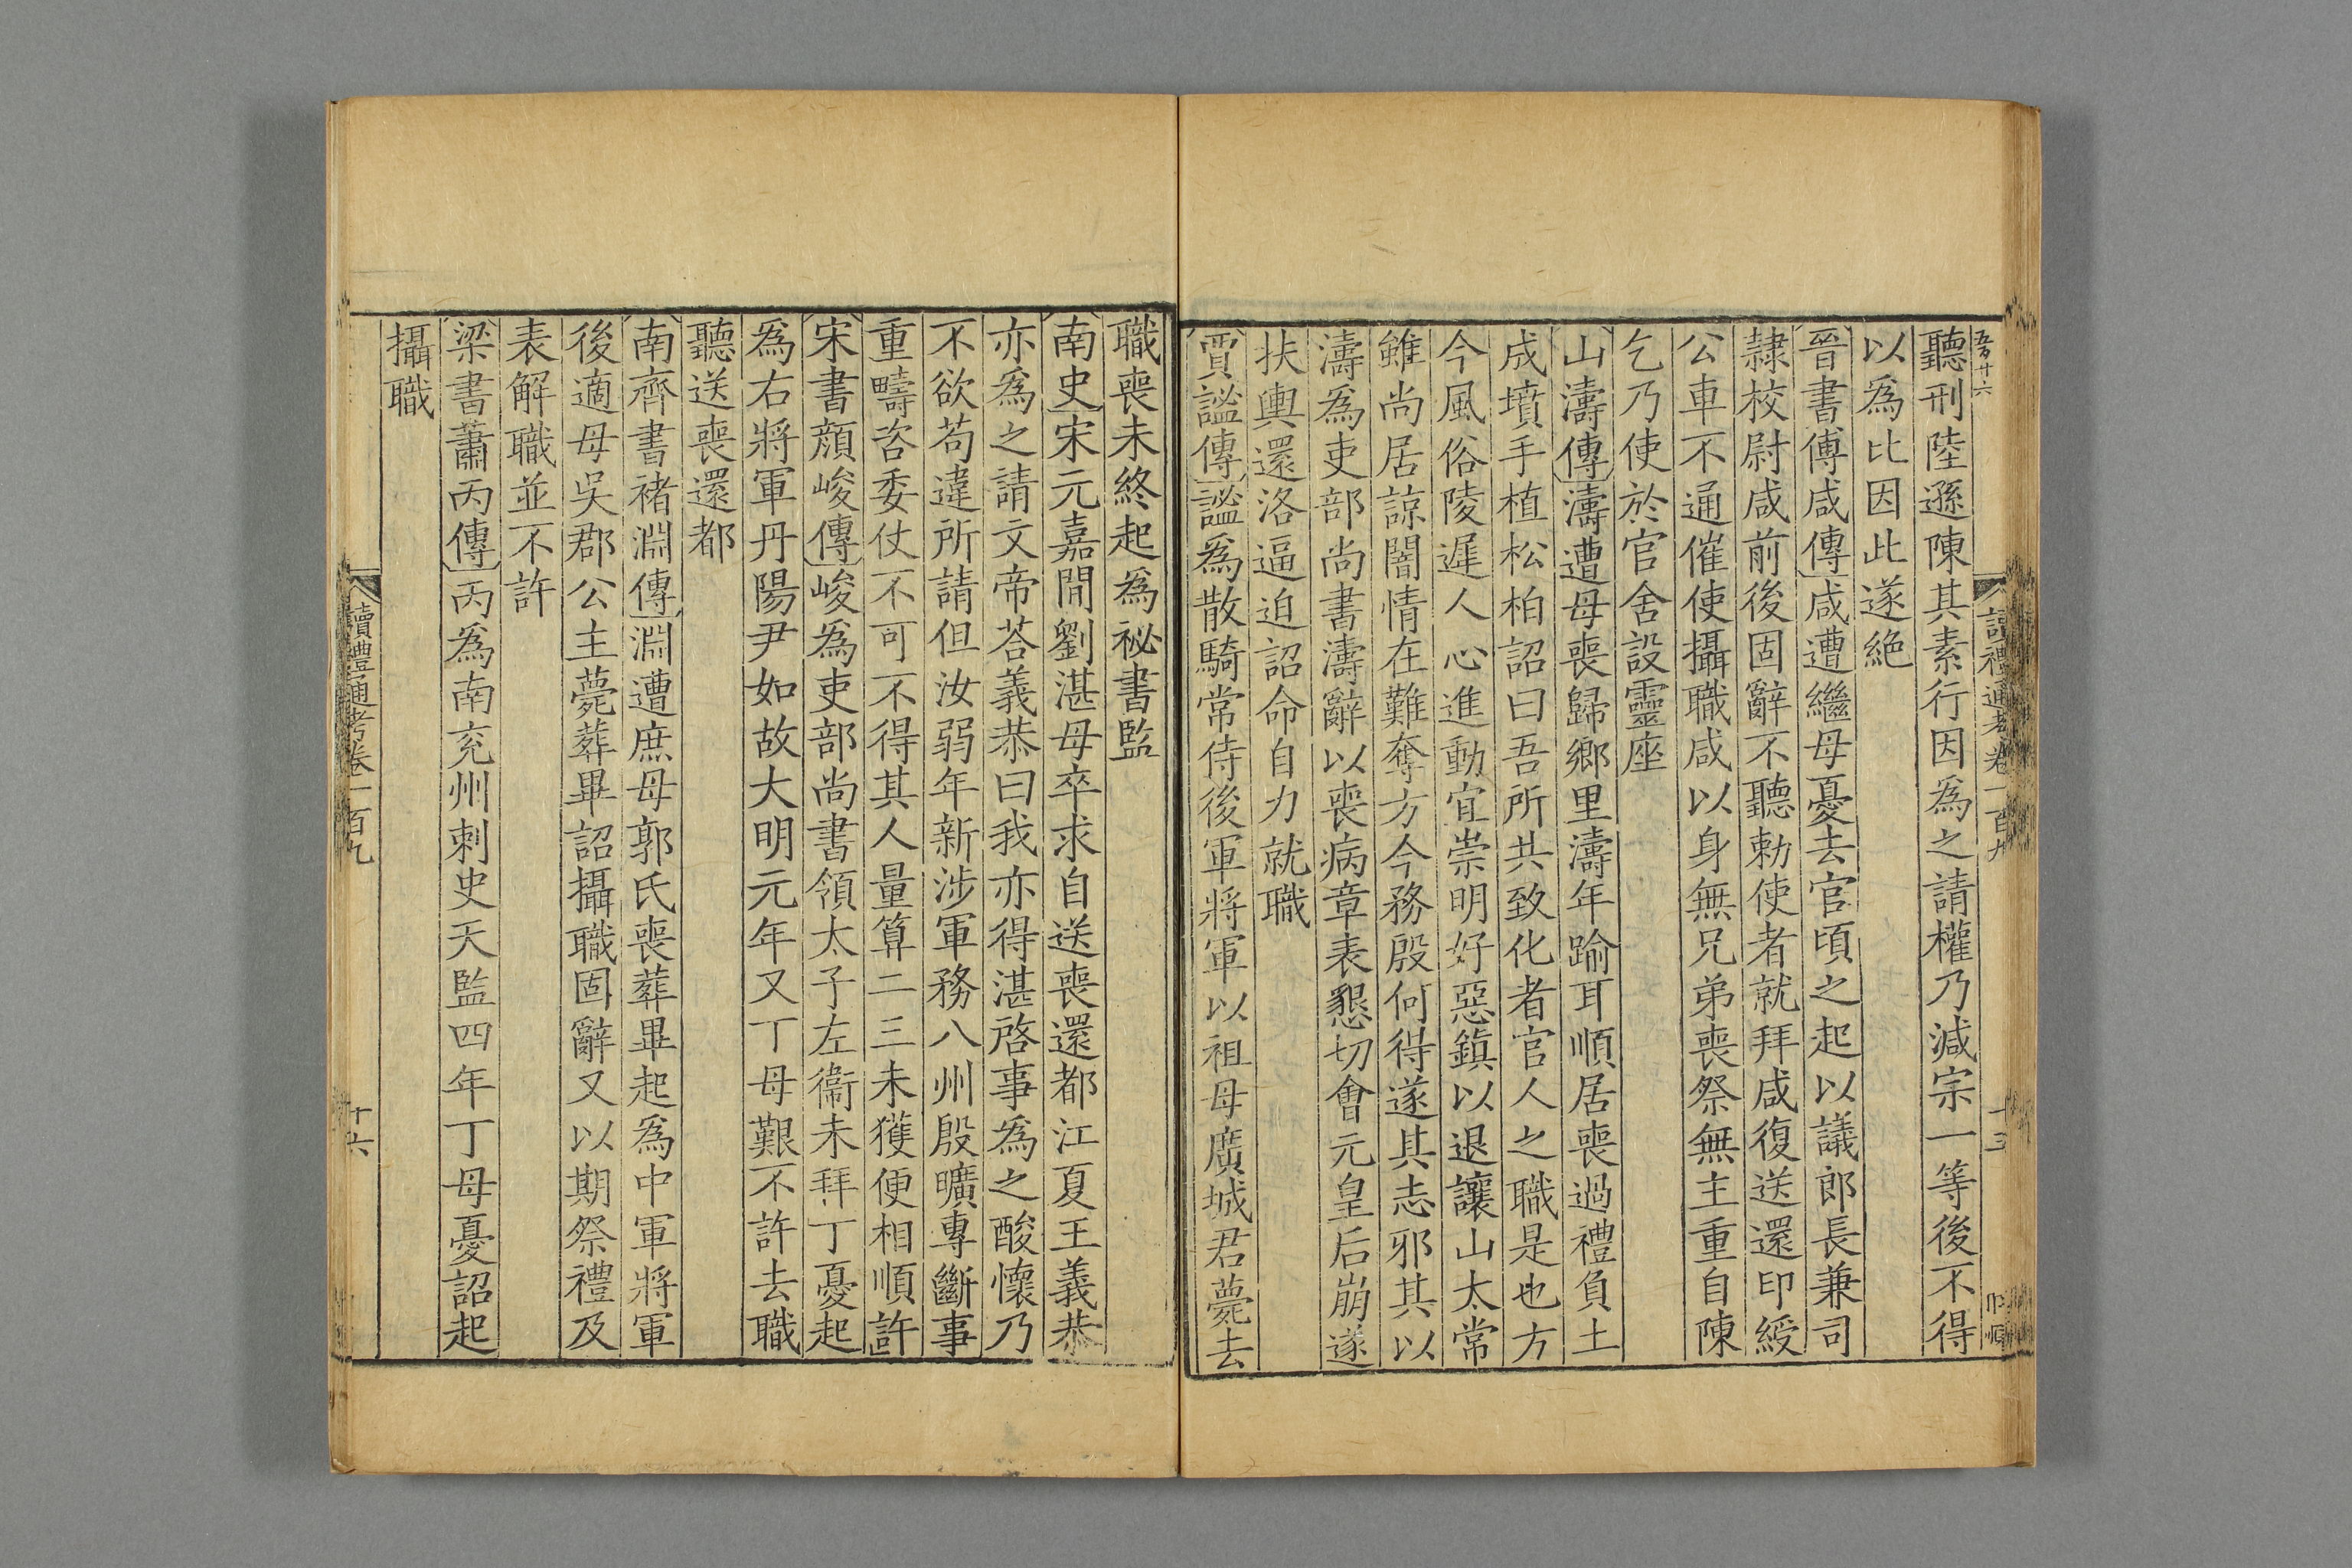 聽刑陸遜陳其素行因爲之請權乃減宗一等後不得
以爲比因此遂絶
晉書傅咸傳咸遭繼母憂去官頃之起以議郎長兼司
隷校尉咸前後固辭不聽勅使者就拜咸復送還印綬
公車不通催使攝職咸以身無兄弟喪祭無主重自陳
乞乃使於官舍設靈座
山濤傳濤遭母喪歸鄉里濤年踰耳順居喪過禮負土
成墳手植松柏詔曰吾所共致化者官人之職是也方
今風俗陵遲人心進動宜崇明好惡鎮以退讓山太常
雖尚居諒闇情在難奪方今務殷何得遂其志邪其以
濤爲吏部尚書濤辭以喪病章表懇切會元皇后崩遂
扶輿還洛逼迫詔命自力就職
賈謐傳謐爲散騎常侍後軍將軍以祖母廣城君薨去
職喪未終起爲祕書監
南史宋元嘉閒劉湛母卒求自送喪還都江夏王義恭
亦爲之請文帝荅義恭曰我亦得湛啓事爲之酸懷乃
不欲苟違所請但汝弱年新涉軍務八州殷曠專斷事
重疇咨委仗不可不得其人量算二三未獲便相順許
宋書顏峻傳峻爲吏部尚書領太子左衞未拜丁憂起
爲右將軍丹陽尹如故大明元年又丁母艱不許去職
聽送喪還都
南齊書褚淵傳淵遭庶母郭氏喪葬畢起爲中軍將軍
後適母吳郡公主薨葬畢詔攝職固辭又以期祭禮及
表解職並不許
梁書蕭丙傳丙爲南兖州刺史天監四年丁母憂詔起
攝職
讀禮通考卷一百九
十六